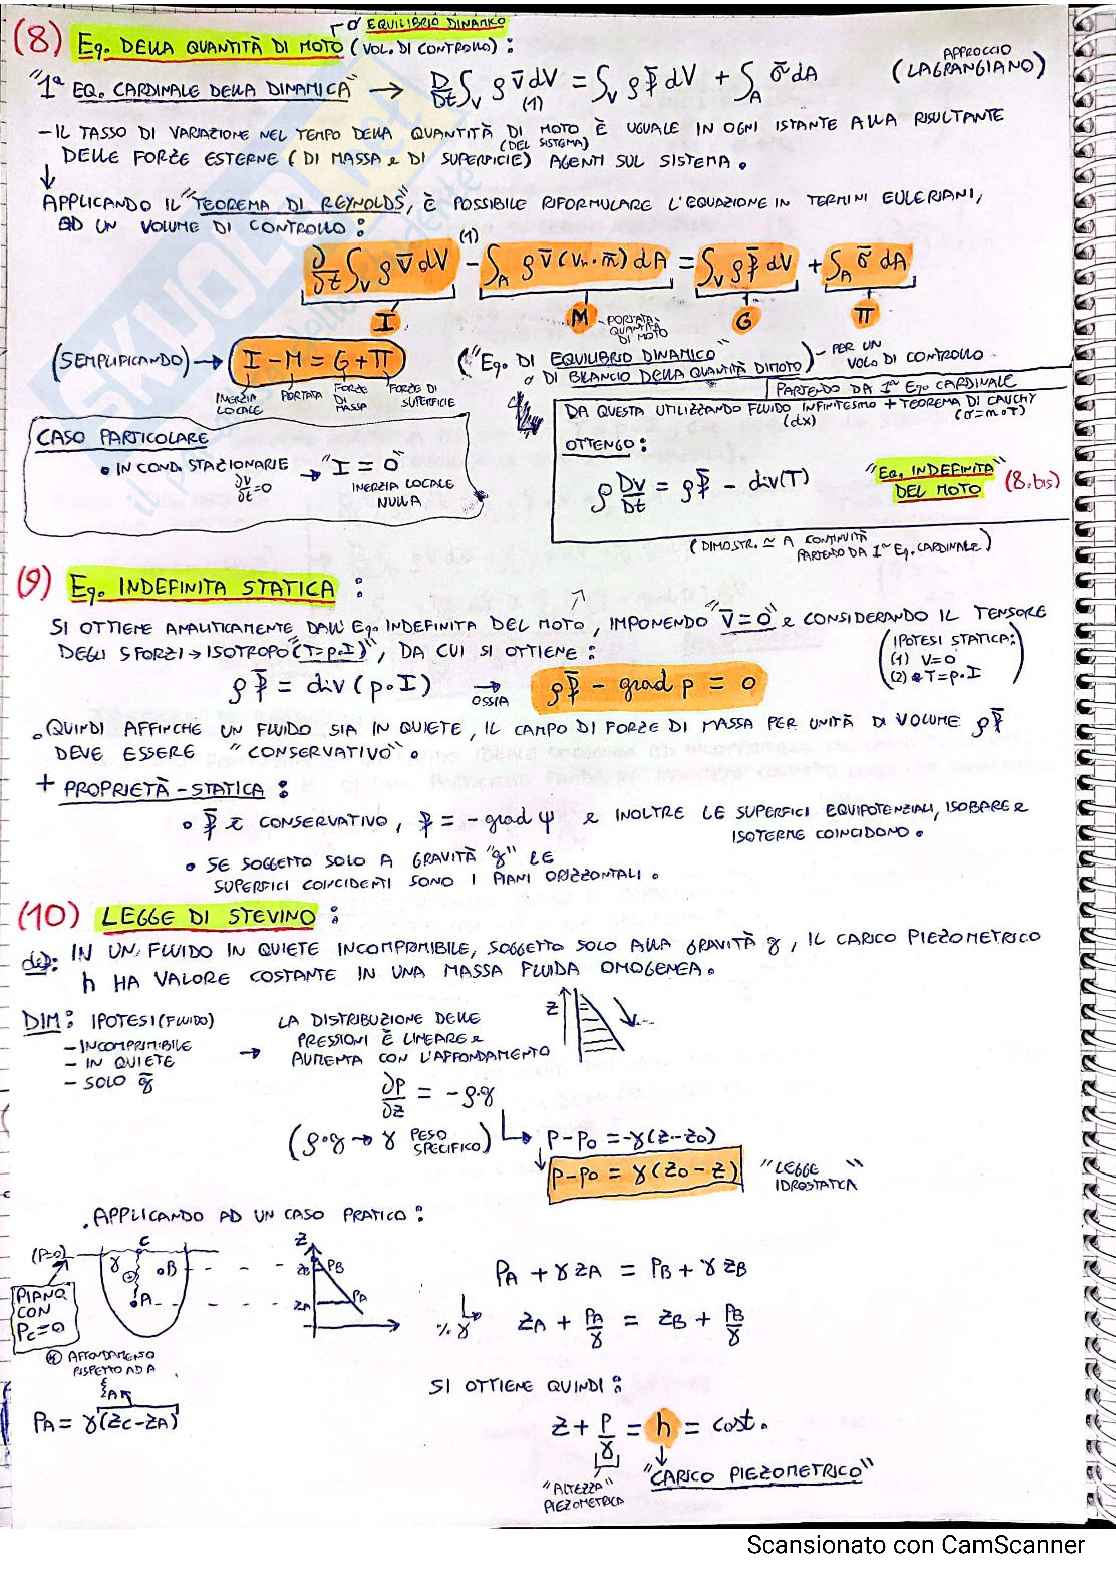 (8) Eq. DELLA QUANTITÀ DI MOTO (VOL. DI CONTROLLO) : o EQUILIBRIO DINAMICO
"1ª EQ. CARDINALE DELLA DINAMICA" → D/Dt ∫V ρ v̄ dV = ∫V ρ F̄ dV + ∫A σ̄ dA
(1)
APPROCCIO
(LAGRANGIANO)
- IL TASSO DI VARIAZIONE NEL TEMPO DELLA QUANTITÀ DI MOTO È UGUALE IN OGNI ISTANTE ALLA RISULTANTE
(DEL SISTEMA)
DELLE FORZE ESTERNE (DI MASSA e DI SUPERFICIE) AGENTI SUL SISTEMA.
↓
APPLICANDO IL "TEOREMA DI REYNOLDS", È POSSIBILE RIFORMULARE L'EQUAZIONE IN TERMINI EULERIANI,
AD UN VOLUME DI CONTROLLO:
(1)
∂/∂t ∫V ρ v̄ dV - ∫A ρ v̄ (vn · n̄) dA = ∫V ρ F̄ dV + ∫A σ̄ dA
I M G Π
- PORTATA QUANTITÀ DI MOTO
(SEMPLIFICANDO) → I - M = G + Π
INERZIA LOCALE PORTATA FORZE DI MASSA FORZE DI SUPERFICIE
("Eq. DI EQUILIBRIO DINAMICO"
o DI BILANCIO DELLA QUANTITÀ DI MOTO) - PER UN
VOLO DI CONTROLLO
PARTENDO DA 1ª Eq. CARDINALE
DA QUESTA UTILIZZANDO FLUIDO INFINITESIMO + TEOREMA DI CAUCHY
(dx) (σ = m · T)
OTTENGO:
ρ Dv/Dt = ρ F̄ - div(T)
"Eq. INDEFINITA"
DEL MOTO (8.bis)
(DIMOSTR. ≃ A CONTINUITÀ
PARTENDO DA 1ª Eq. CARDINALE)
CASO PARTICOLARE
• IN COND. STAZIONARIE → "I = 0"
∂v/∂t = 0
INERZIA LOCALE
NULLA
(9) Eq. INDEFINITA STATICA :
SI OTTIENE ANALITICAMENTE DALL'Eq. INDEFINITA DEL MOTO, IMPONENDO "v̄ = 0" e CONSIDERANDO IL TENSORE
DEGLI SFORZI → ISOTROPO "(T = p · I)", DA CUI SI OTTIENE :
(IPOTESI STATICA:
(1) V = 0
(2) T = p · I)
ρ F̄ = div (p · I) → OSSIA ρ F̄ - grad p = 0
. QUINDI AFFINCHE UN FLUIDO SIA IN QUIETE, IL CAMPO DI FORZE DI MASSA PER UNITÀ DI VOLUME ρ F̄
DEVE ESSERE "CONSERVATIVO".
+ PROPRIETÀ - STATICA :
• F̄ È CONSERVATIVO, F = - grad ψ e INOLTRE LE SUPERFICI EQUIPOTENZIALI, ISOBARE e
ISOTERME COINCIDONO.
• SE SOGGETTO SOLO A GRAVITÀ "g" LE
SUPERFICI COINCIDENTI SONO I PIANI ORIZZONTALI.
(10) LEGGE DI STEVINO :
def: IN UN FLUIDO IN QUIETE INCOMPRIMIBILE, SOGGETTO SOLO ALLA GRAVITÀ g, IL CARICO PIEZOMETRICO
h HA VALORE COSTANTE IN UNA MASSA FLUIDA OMOGENEA.
DIM: IPOTESI (FLUIDO)
- INCOMPRIMIBILE
- IN QUIETE
- SOLO ḡ
→ LA DISTRIBUZIONE DELLE
PRESSIONI È LINEARE e
AUMENTA CON L'AFFONDAMENTO
z
∂P/∂z = - ρ · g
(ρ · g → γ PESO SPECIFICO)
P - P0 = - γ (z - z0)
P - P0 = γ (z0 - z) "LEGGE IDROSTATICA"
. APPLICANDO AD UN CASO PRATICO :
(P=0) C γ B A
PIANO
CON
Pc = 0
AFFONDAMENTO
RISPETTO AD A
ζA
PA = γ (zC - zA)
z
zB PB
zA PA
PA + γ zA = PB + γ zB
% γ zA + PA/γ = zB + PB/γ
SI OTTIENE QUINDI :
z + P/γ = h = cost.
"ALTEZZA"
PIEZOMETRICA
"CARICO PIEZOMETRICO"
Scansionato con CamScanner